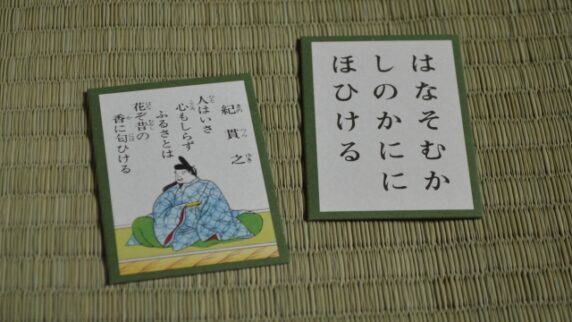 紀貫之
人はいさ
心もしらず
ふるさとは
花ぞ昔の
香に匂ひける
はなそむか
しのかにに
ほひける